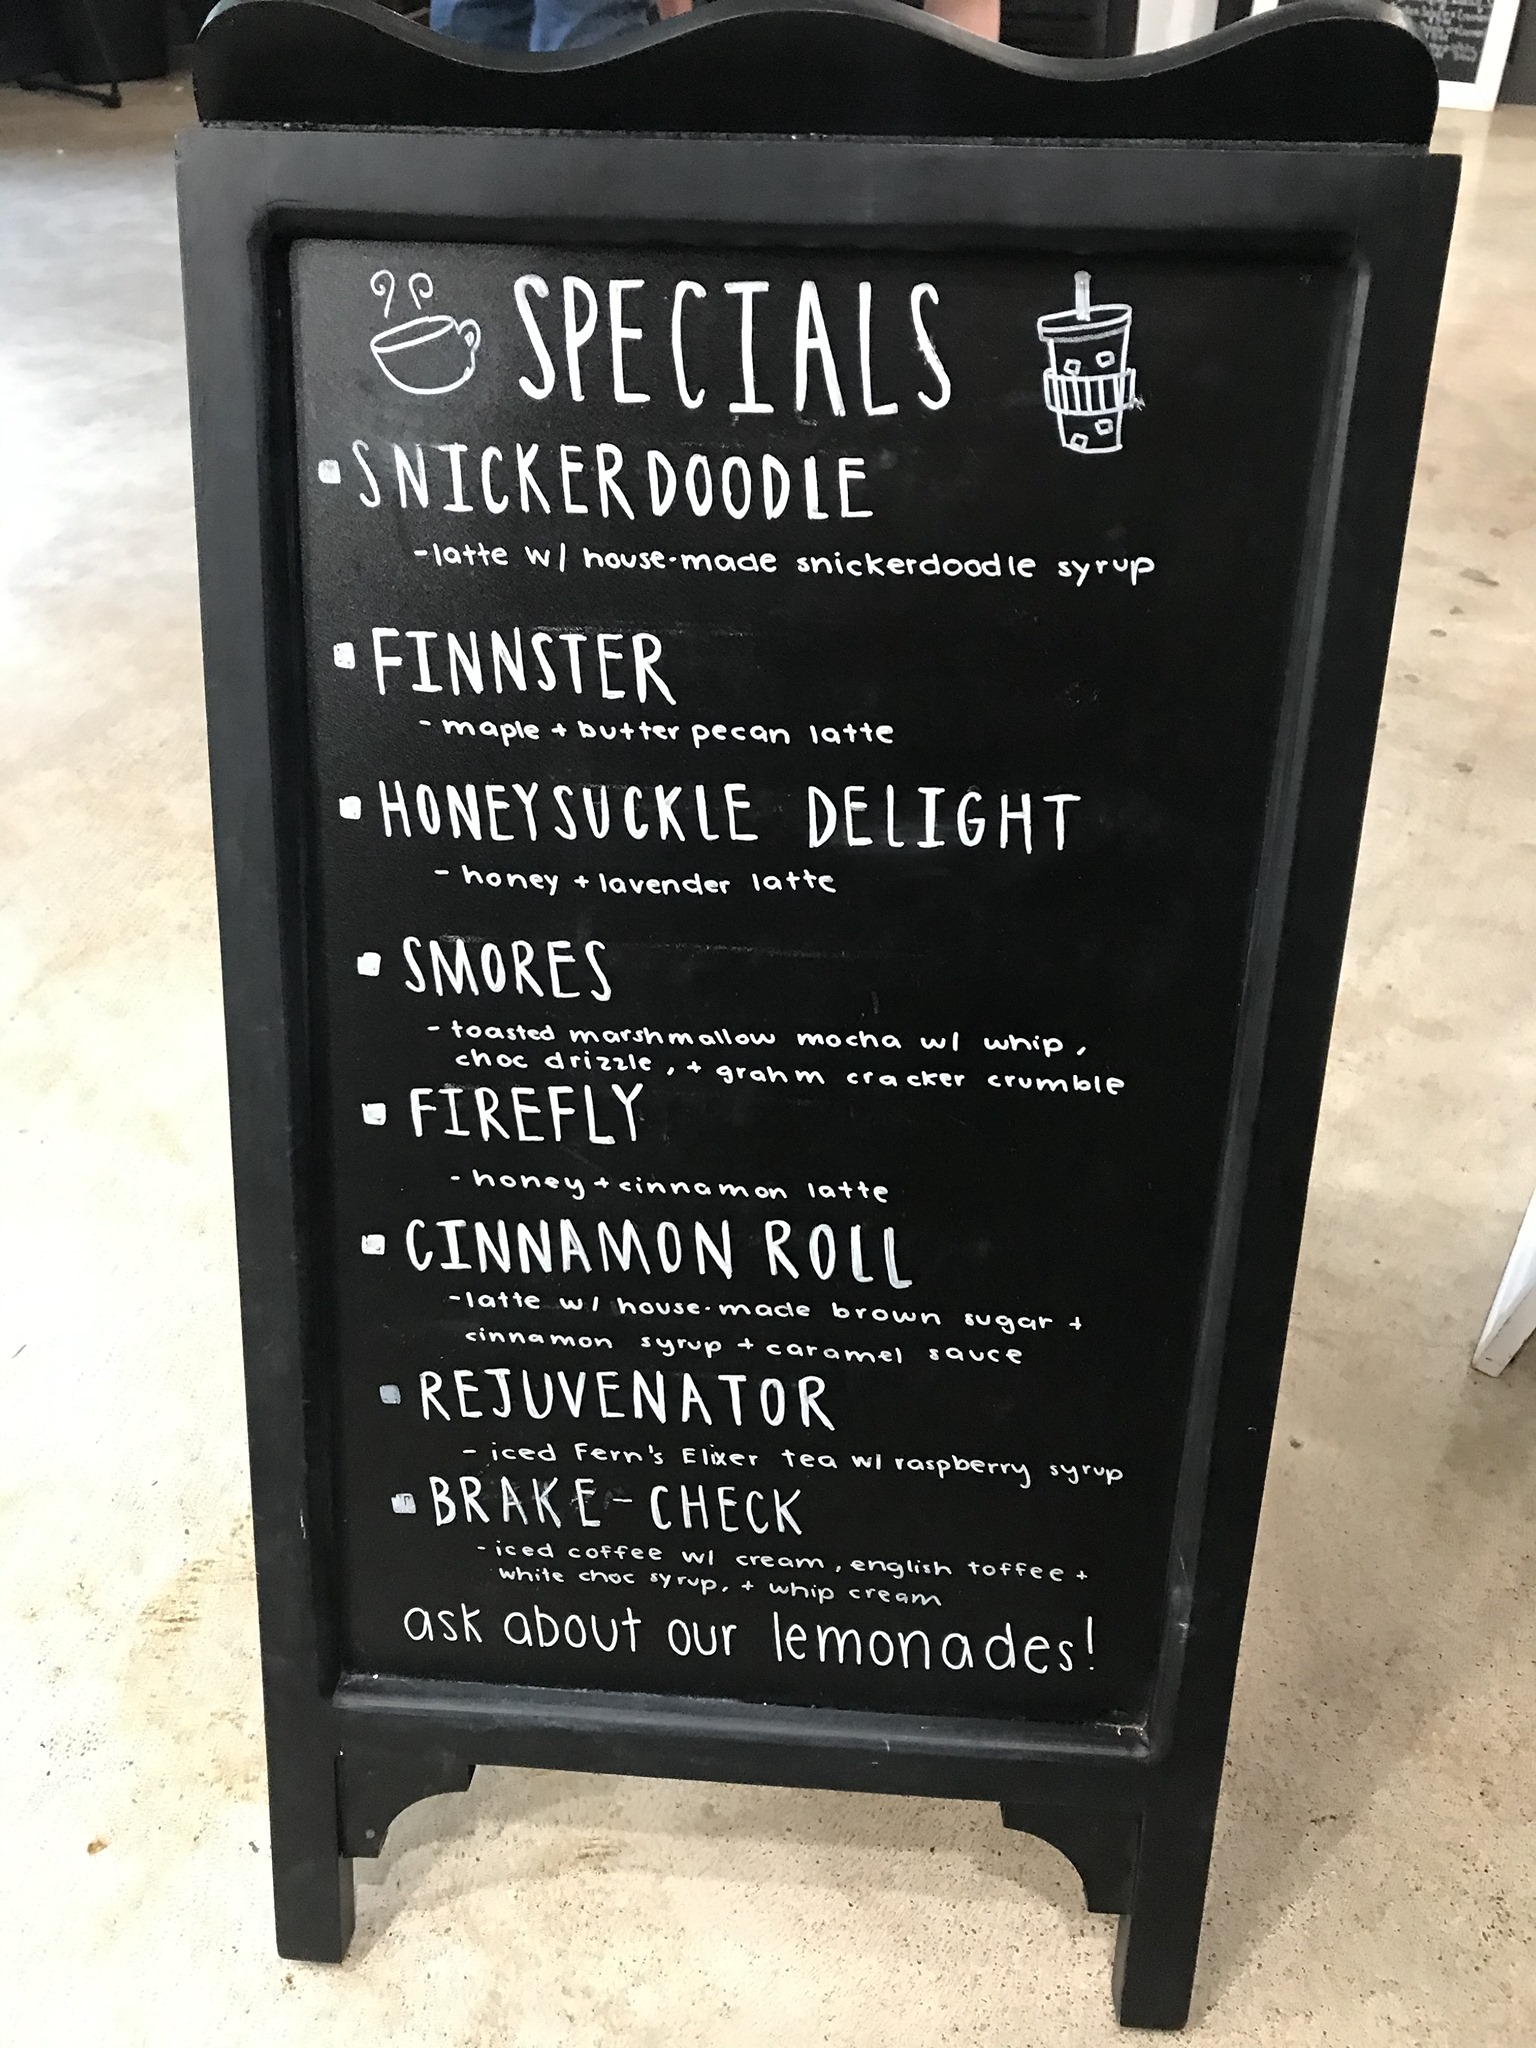 SPECIALS
SNICKERDOODLE
-latte w/ house-made snickerdoodle syrup
FINNSTER
- maple + butter pecan latte
HONEYSUCKLE DELIGHT
- honey + lavender latte
SMORES
- toasted marshmallow mocha w/ whip,
choc drizzle, + grahm cracker crumble
FIREFLY
- honey + cinnamon latte
CINNAMON ROLL
-latte w/ house-made brown sugar +
cinnamon syrup + caramel sauce
REJUVENATOR
- iced Fern's Elixer tea w/ raspberry syrup
BRAKE-CHECK
-iced coffee w/ cream, english toffee +
white choc syrup, + whip cream
ask about our lemonades!